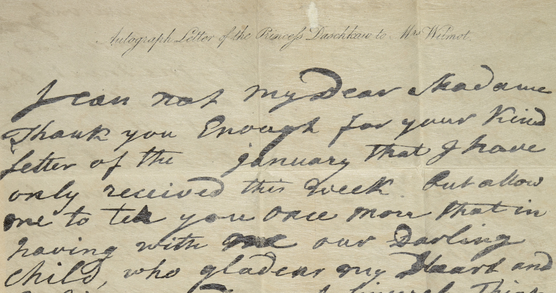 Autograph Letter of the Princess Daschkaw to Mrs Wilmot.
I can not my Dear Madame
Thank you Enough for your Kind
letter of the january that I have
only received this week. But allow
me to tell you once more that in
having with our Darling
child, who gladens my Heart and